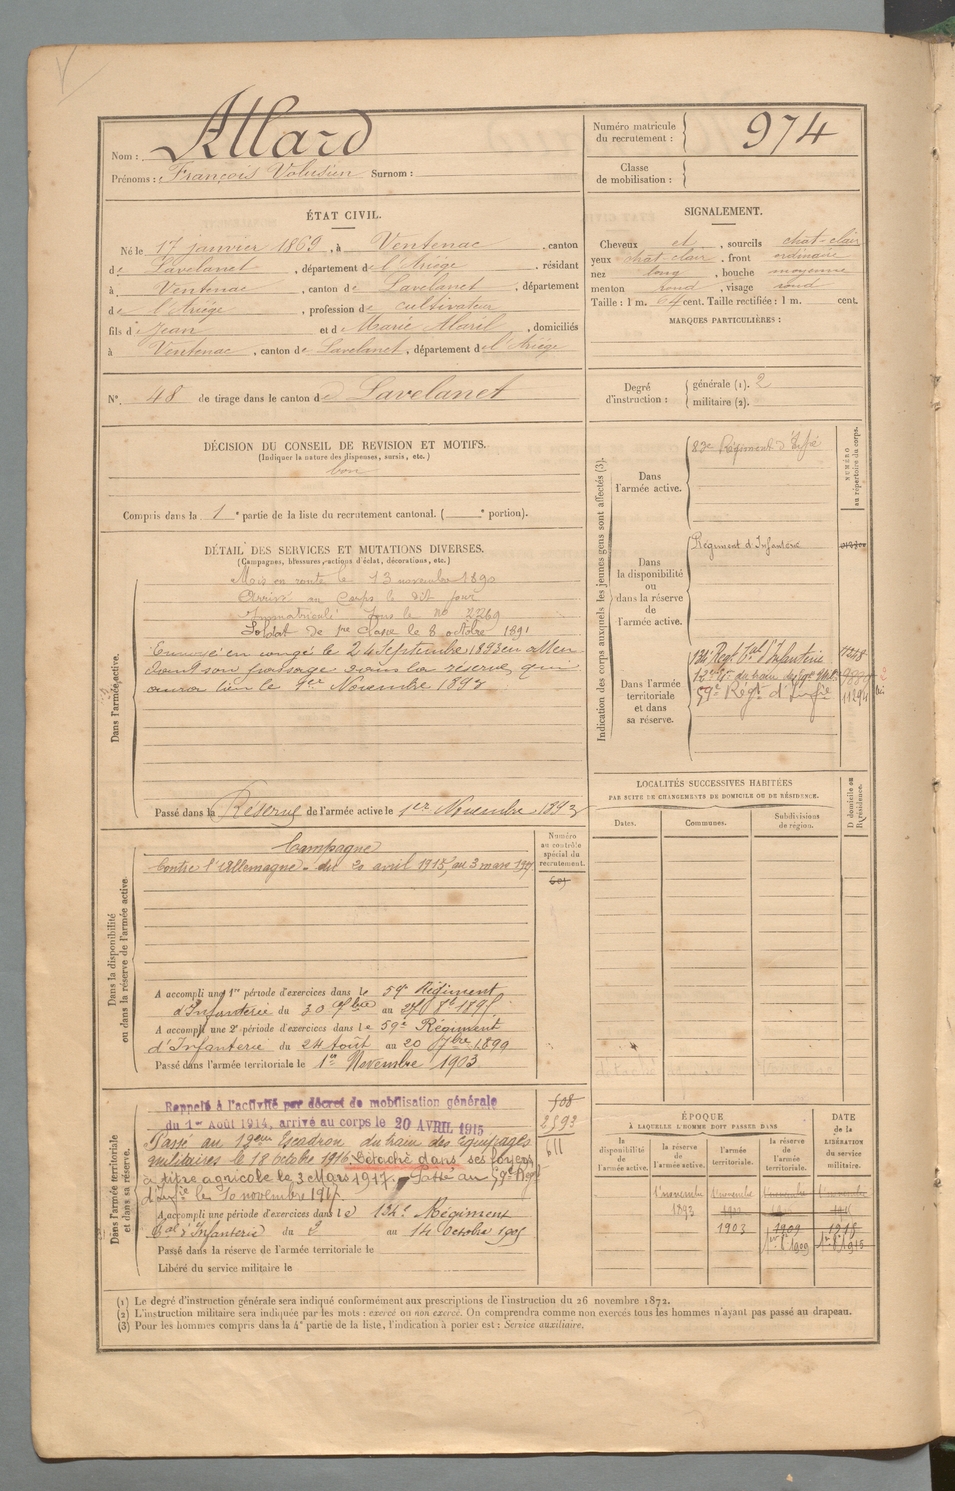 Nom : Allard
Prénoms : François Volusien Surnom :
Numéro matricule du recrutement : 974
Classe de mobilisation :
ÉTAT CIVIL.
Né le 17 janvier 1869, à Ventenac, canton
de Lavelanet, département de l'Ariége, résidant
à Ventenac, canton de Lavelanet, département
de l'Ariége, profession de cultivateur
fils de Jean et de Marie Alaril, domiciliés
à Ventenac, canton de Lavelanet, département de l'Ariége
SIGNALEMENT.
Cheveux et, sourcils chat-clair
yeux chat clair, front ordinaire
nez long, bouche moyenne
menton rond, visage rond
Taille : 1 m. 64 cent. Taille rectifiée : 1 m. cent.
MARQUES PARTICULIÈRES :
N°. 48 de tirage dans le canton de Lavelanet
Degré d'instruction : générale (1). 2
militaire (2).
DÉCISION DU CONSEIL DE REVISION ET MOTIFS.
(Indiquer la nature des dispenses, sursis, etc.)
bon
Compris dans la 1e partie de la liste du recrutement cantonal. ( e portion).
DÉTAIL DES SERVICES ET MUTATIONS DIVERSES.
(Campagnes, blessures, actions d'éclat, décorations, etc.)
Dans l'armée active.
Mis en route le 13 novembre 1890
Arrivé au Corps le dit jour
Immatriculé sous le no 2269
Soldat de 1re classe le 8 octobre 1891
Envoyé en congé le 24 Septembre 1893 en atten
dant son passage dans la réserve qui
aura lieu le 1er Novembre 1893
Passé dans la Réserve de l'armée active le 1er Novembre 1893
Indication des corps auxquels les jeunes gens sont affectés (3).
NUMÉRO au répertoire du corps.
Dans l'armée active.
83e Régiment d'Infie
Dans la disponibilité ou dans la réserve de l'armée active.
Régiment d'Infanterie
Dans l'armée territoriale et dans sa réserve.
134e Regt Tal d'Infanterie 11238
59e Regt d'Infie
LOCALITÉS SUCCESSIVES HABITÉES
PAR SUITE DE CHANGEMENTS DE DOMICILE OU DE RÉSIDENCE.
Dates. Communes. Subdivisions de région. D domicile ou R résidence.
Dans la disponibilité ou dans la réserve de l'armée active.
Numéro au contrôle spécial du recrutement.
Campagne
Contre l'Allemagne - du 20 avril 1915 au 3 mars 1917
A accompli une 1re période d'exercices dans le 59e Régiment
d'Infanterie du 30 7bre au 27 8b 1895
A accompli une 2e période d'exercices dans le 59e Régiment
d'Infanterie du 24 Août au 20 7bre 1899
Passé dans l'armée territoriale le 1er Novembre 1903
Dans l'armée territoriale et dans sa réserve.
Rappelé à l'activité par décret de mobilisation générale
du 1er Août 1914, arrivé au corps le 20 AVRIL 1915
Passé au 12eme Escadron du train des Equipages
militaires le 18 octobre 1916. Détaché dans ses foyers
à titre agricole le 3 Mars 1917. Passé au 59e Regt
d'Infie le 10 novembre 1917.
A accompli une période d'exercices dans le 134e Régiment
Tal d'Infanterie du 2 au 14 Octobre 1905
Passé dans la réserve de l'armée territoriale le
Libéré du service militaire le
508
2593
611
ÉPOQUE
À LAQUELLE L'HOMME DOIT PASSER DANS
la disponibilité de l'armée active. la réserve de l'armée active. l'armée territoriale. la réserve de l'armée territoriale. DATE de la LIBÉRATION du service militaire.
1 novembre 1 novembre 1 novembre 1 novembre
1893
1903 1909 1915
1er 8b 1909 1er 8b 1915
(1) Le degré d'instruction générale sera indiqué conformément aux prescriptions de l'instruction du 26 novembre 1872.
(2) L'instruction militaire sera indiquée par les mots : exercé ou non exercé. On comprendra comme non exercés tous les hommes n'ayant pas passé au drapeau.
(3) Pour les hommes compris dans la 4e partie de la liste, l'indication à porter est : Service auxiliaire.